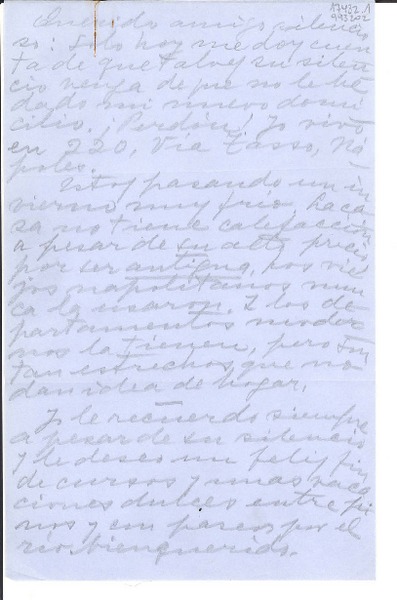 A7432.A
993202
Querido amigo silencio
so: Solo hoy me doy cuen
ta de que talvez su silen
cio venga de que no le he
dado mi nuevo domi
cilio. ¡Perdón! Yo vivo
en 220, Via Tasso, Ná
poles.
Estoy pasando un in
vierno muy frío. La ca
sa no tiene calefacción
a pesar de su alto precio
por ser antigua, los vie
jos napolitanos nun
ca la usaron. I los de
partamentos moder
nos la tienen, pero son
tan estrechos que no
dan idea de hogar.
Yo le recuerdo siempre
a pesar de su silencio
y le deseo un feliz fin
de cursos y unas vaca
ciones dulces entre pi
nos y con paseos por el
río bienquerido.